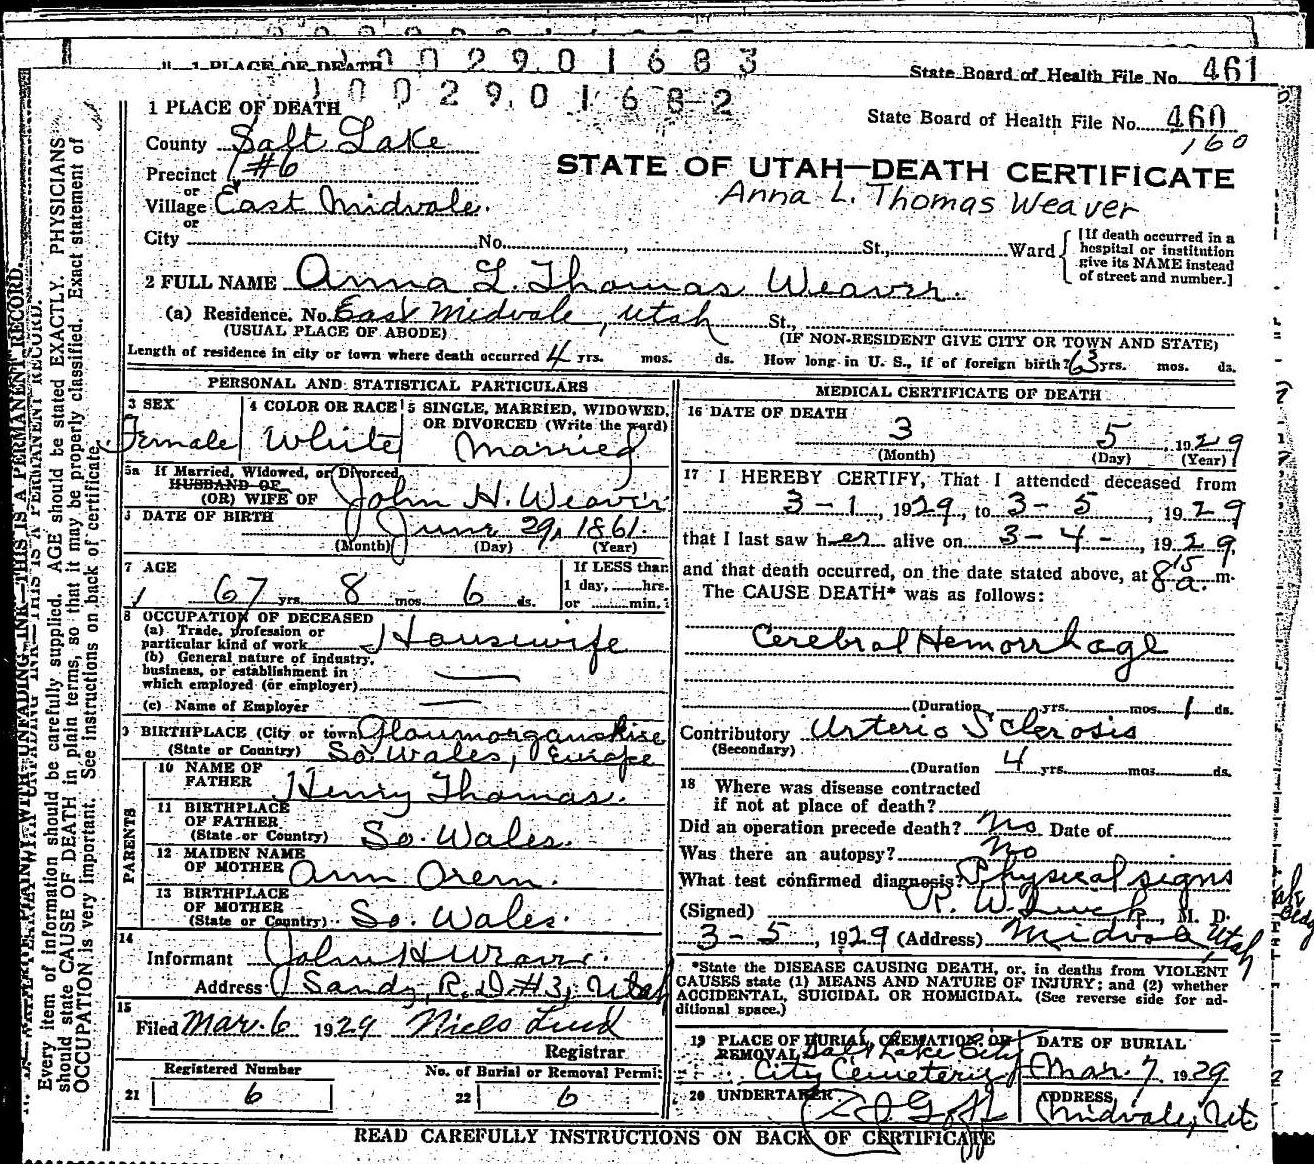 1 PLACE OF DEATH 10029.01683
State Board of Health File No. 461
10029.01682
1 PLACE OF DEATH
State Board of Health File No. 460
160
County Salt Lake
Precinct #6
STATE OF UTAH—DEATH CERTIFICATE
or
Village East Midvale.
Anna L. Thomas Weaver
or
City No. , St., Ward
[If death occurred in a
hospital or institution
give its NAME instead
of street and number.]
2 FULL NAME Anna L. Thomas Weaver.
(a) Residence. No. East Midvale, Utah St.,
(USUAL PLACE OF ABODE) (IF NON-RESIDENT GIVE CITY OR TOWN AND STATE)
Length of residence in city or town where death occurred 4 yrs. mos. ds. How long in U. S., if of foreign birth? 63 yrs. mos. ds.
PERSONAL AND STATISTICAL PARTICULARS
3 SEX 4 COLOR OR RACE 5 SINGLE, MARRIED, WIDOWED,
OR DIVORCED (Write the word)
Female White Married
5a If Married, Widowed, or Divorced
HUSBAND OF
(OR) WIFE OF John H. Weaver
DATE OF BIRTH June 29, 1861.
(Month) (Day) (Year)
7 AGE If LESS than
67 yrs. 8 mos. 6 ds. 1 day, hrs.
or min.?
8 OCCUPATION OF DECEASED
(a) Trade, profession or
particular kind of work Housewife
(b) General nature of industry,
business, or establishment in
which employed (or employer) —
(c) Name of Employer —
9 BIRTHPLACE (City or town) Gloumorganshire
(State or Country) So. Wales, Europe
PARENTS
10 NAME OF
FATHER Henry Thomas.
11 BIRTHPLACE
OF FATHER
(State or Country) So. Wales.
12 MAIDEN NAME
OF MOTHER Ann Orem.
13 BIRTHPLACE
OF MOTHER
(State or Country) So. Wales.
14
Informant John H Weaver.
Address Sandy, R.D. #3, Utah
15
Filed Mar. 6 1929 Niels Lind
Registrar
Registered Number No. of Burial or Removal Permit
21 6 22 6
MEDICAL CERTIFICATE OF DEATH
16 DATE OF DEATH
3 5, 1929
(Month) (Day) (Year)
17 I HEREBY CERTIFY, That I attended deceased from
3 - 1, 1929, to 3 - 5, 1929
that I last saw her alive on 3 - 4 -, 1929,
and that death occurred, on the date stated above, at 8 15 a. m.
The CAUSE DEATH* was as follows:
Cerebral Hemorrhage
(Duration yrs. mos. 1 ds.
Contributory Arterio Sclerosis
(Secondary)
(Duration 4 yrs. mos. ds.
18 Where was disease contracted
if not at place of death?
Did an operation precede death? No Date of
Was there an autopsy? No
What test confirmed diagnosis? Physical signs
(Signed) , M. D.
3 - 5, 1929 (Address) Midvale, Utah
*State the DISEASE CAUSING DEATH, or, in deaths from VIOLENT
CAUSES state (1) MEANS AND NATURE OF INJURY; and (2) whether
ACCIDENTAL, SUICIDAL OR HOMICIDAL. (See reverse side for ad-
ditional space.)
19 PLACE OF BURIAL, CREMATION, OR
REMOVAL Salt Lake City
City Cemetery
DATE OF BURIAL
Mar. 7, 1929
20 UNDERTAKER
ADDRESS
Midvale, Ut.
READ CAREFULLY INSTRUCTIONS ON BACK OF CERTIFICATE
WRITE PLAINLY WITH UNFADING INK—THIS IS A PERMANENT RECORD.
Every item of information should be carefully supplied. AGE should be stated EXACTLY. PHYSICIANS
should state CAUSE OF DEATH in plain terms, so that it may be properly classified. Exact statement of
OCCUPATION is very important. See instructions on back of certificate.